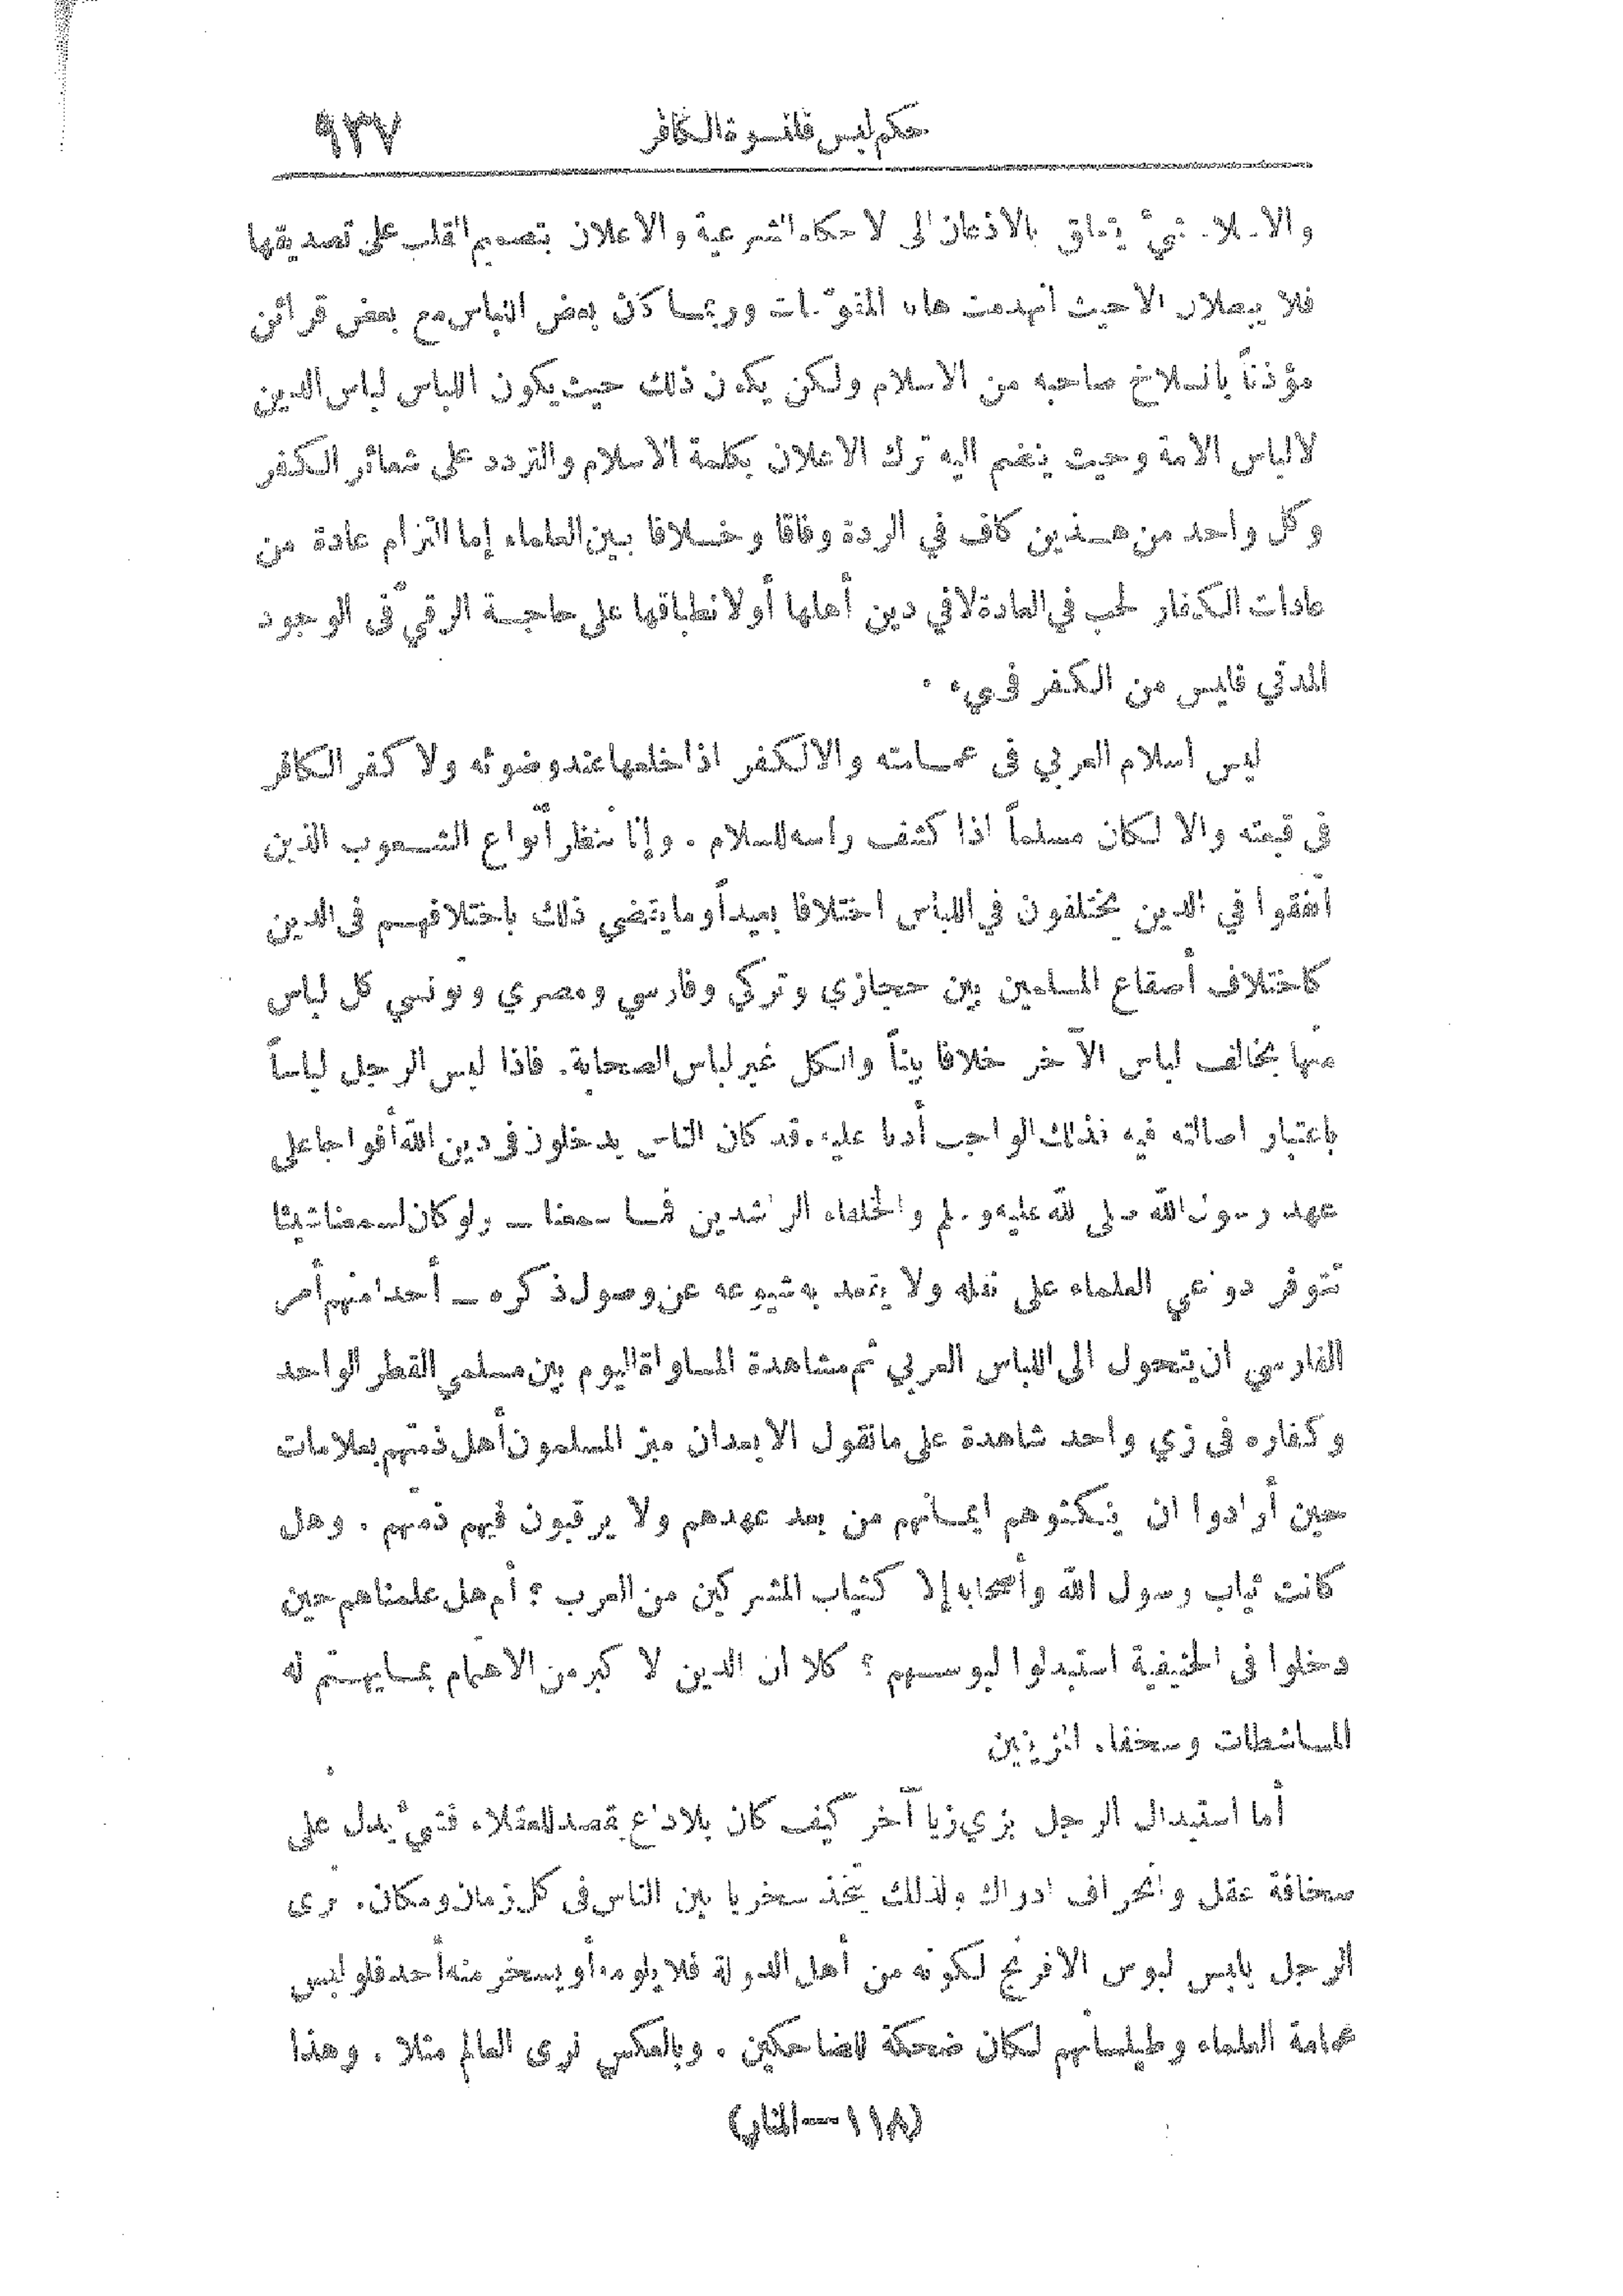 حكم لبس قلنسوة الكافر ٩٣٧
والاسلام شيء يتعلق بالاذعان الى الاحكام الشرعية والاعلان بتصميم القلب على تصديقها
فلا يبطلان الا حيث انهدمت هاته المقومات وربما كان بعض اللباس مع بعض قرائن
مؤذناً بانسلاخ صاحبه من الاسلام ولكن يكون ذلك حيث يكون اللباس لباس الدين
لا لباس الامة وحيث ينضم اليه ترك الاعلان بكلمة الاسلام والتردد على شعائر الكفر
وكل واحد من هذين كاف في الردة وفاقا وخلافا بين العلماء إما التزام عادة من
عادات الكفار لحب في العادة لا في دين أهلها أو لانطباقها على حاجة الرقي في الوجود
المدني فليس من الكفر في شيء .
ليس اسلام العربي في عمامته والا لكفر اذا خلعها عند وضوئه ولا كفر الكافر
في قبعته والا لكان مسلماً اذا كشف راسه للسلام . وإنا ننظر أنواع الشعوب الذين
اتفقوا في الدين يختلفون في اللباس اختلافا بعيداً وما يقضي ذلك باختلافهم في الدين
كاختلاف أصقاع المسلمين بين حجازي وتركي وفارسي ومصري وتونسي كل لباس
منها يخالف لباس الآخر خلافا بيناً والكل غير لباس الصحابة. فاذا لبس الرجل لباساً
باعتبار اصالته فيه فذلك الواجب أدبا عليه. قد كان الناس يدخلون في دين الله أفواجا على
عهد رسول الله صلى الله عليه وسلم والخلفاء الراشدين فما سمعنا ــ ولو كان لسمعنا شيئا
تتوفر دواعي العلماء على نقله ولا يقعد به شيوعه عن وصول ذكره ــ أحدا منهم أمر
الفارسي ان يتحول الى اللباس العربي ثم مشاهدة المساواة اليوم بين مسلمي القطر الواحد
وكفاره في زي واحد شاهدة على ما نقول الا بعد ان ميز المسلمون أهل ذمتهم بعلامات
حين أرادوا ان ينكثوهم ايمانهم من بعد عهدهم ولا يرقبون فيهم ذمتهم . وهل
كانت ثياب رسول الله وأصحابه إلا كثياب المشركين من العرب ؟ أم هل علمناهم حين
دخلوا في الحنيفية استبدلوا لبوسهم ؟ كلا ان الدين لا كبر من الاهتمام بما يهتم له
الماشطات وسخفاء المزينين
أما استبدال الرجل بزي زيا آخر كيف كان بلا داع يقصد للعقلاء فشيء يدل على
سخافة عقل وانحراف ادراك ولذلك يتخذ سخريا بين الناس في كل زمان ومكان. نرى
الرجل يلبس لبوس الافرنج لكونه من أهل الدولة فلا يلومه أو يسخر منه أحد فلو لبس
عمامة العلماء وطيلسانهم لكان ضحكة للضاحكين . وبالعكس نرى العالم مثلا . وهذا
(١١٨ — المنار)